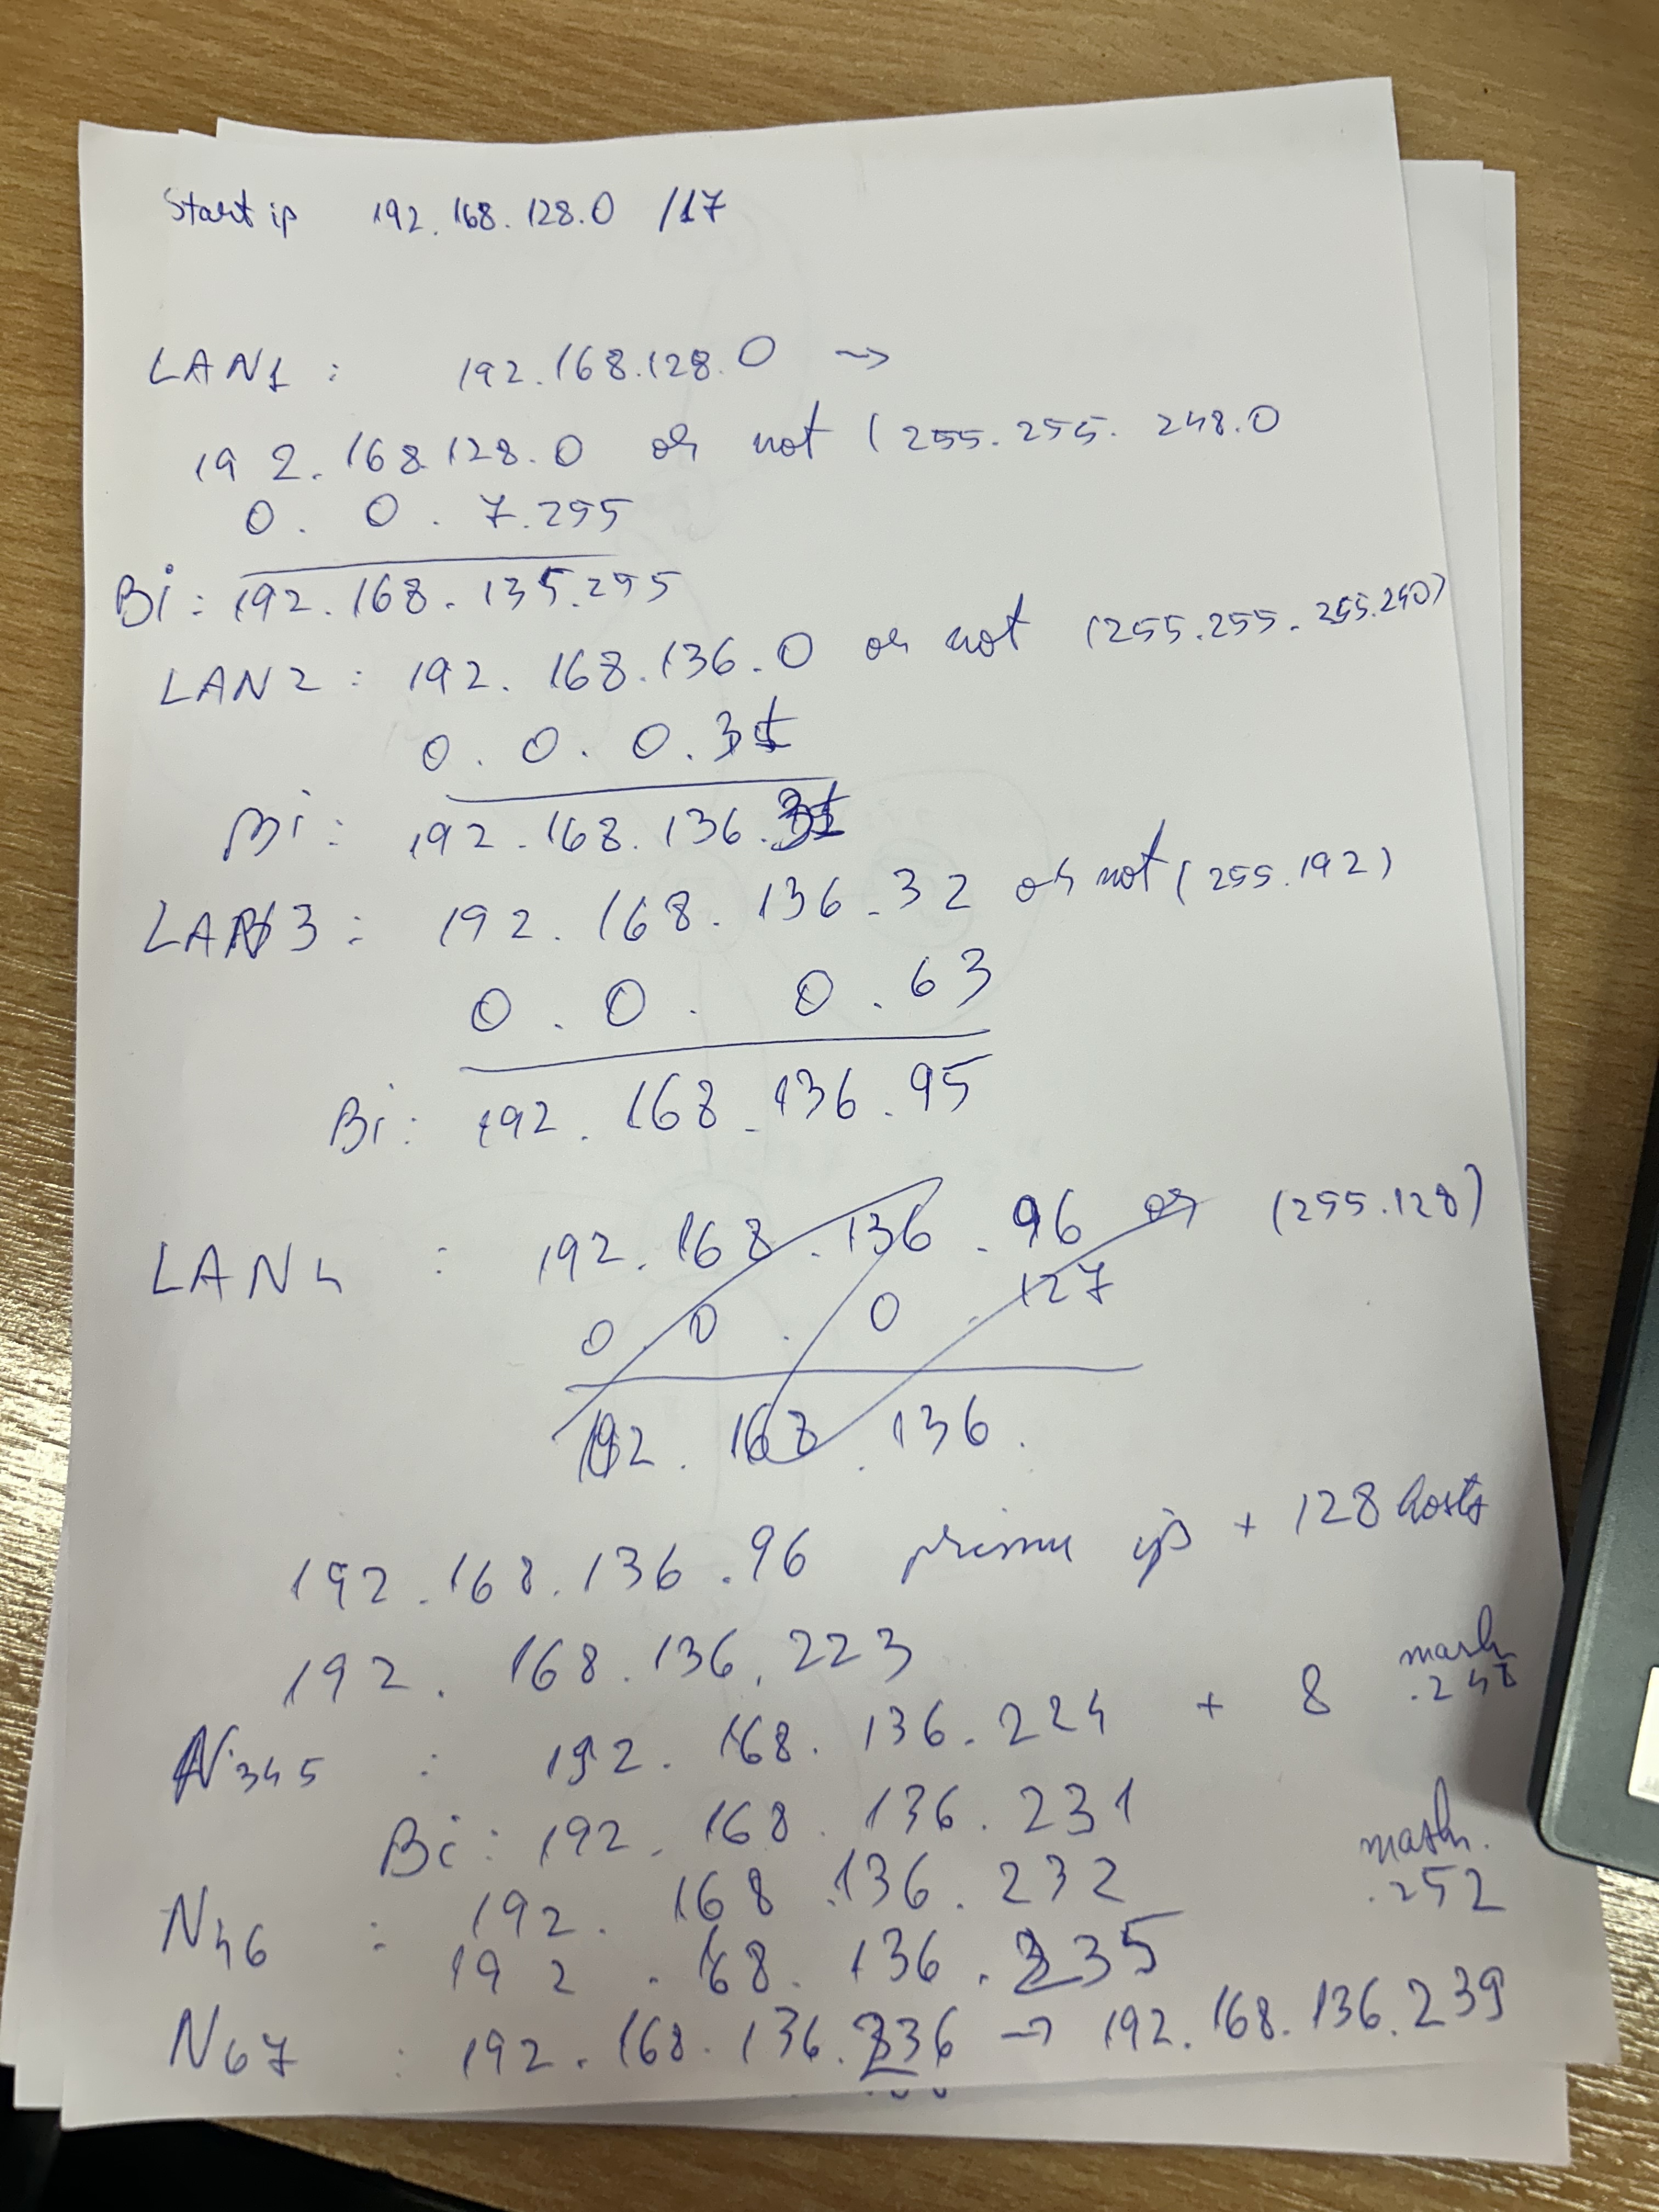 Start ip 192.168.128.0 /17
LAN1 : 192.168.128.0 →
192.168.128.0 or not (255.255.248.0
0. 0. 7.255
Bi: 192.168.135.255
LAN2 : 192.168.136.0 or not (255.255.255.240)
0. 0. 0.31
Bi: 192.168.136.31
LAN3 : 192.168.136.32 or not (255.192)
0. 0. 0.63
Bi: 192.168.136.95
LAN4 : 192.168.136.96 or (255.128)
0. 0. 0.127
192.168.136.
192.168.136.96 primu ip + 128 hosts
192.168.136.223
N345 : 192.168.136.224 + 8 mask .248
Bi: 192.168.136.231
N46 : 192.168.136.232 mask. .252
192.168.136.235
N67 : 192.168.136.236 → 192.168.136.239